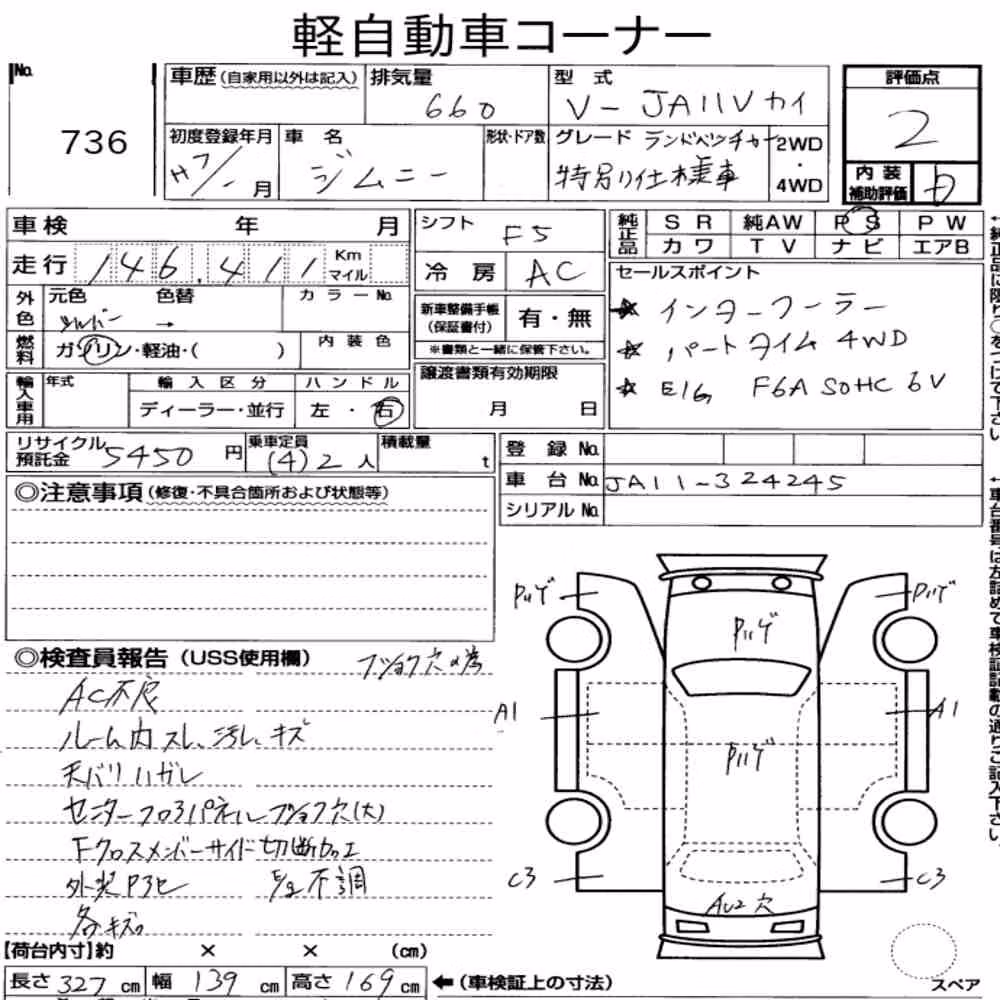 軽自動車コーナー
No. 736
車歴(自家用以外は記入)
排気量 660
型式 V-JA11Vカイ
評価点 2
初度登録年月 H7/- 月
車名 ジムニー
形状・ドア数
グレード ランドベンチャー 特別仕様車
2WD・4WD
内装補助評価 D
車検 年 月
走行 146,411 Km マイル
外色 元色 シルバー → 色替
カラーNo.
燃料 ガソリン・軽油・( )
内装色
輸入車用 年式
輸入区分 ディーラー・並行
ハンドル 左・右
シフト F5
冷房 AC
新車整備手帳(保証書付) 有・無
※書類と一緒に保管下さい。
譲渡書類有効期限
月 日
純正品 SR 純AW PS PW
カワ TV ナビ エアB
セールスポイント
★ インタークーラー
★ パートタイム 4WD
★ E/G F6A SOHC 6V
←純正品に限り○をつけて下さい
リサイクル預託金 5450円
乗車定員 (4)2人
積載量 t
登録No.
車台No. JA11-324245
シリアルNo.
←車台番号は左詰めで車検証記載の通りご記入下さい。
◎注意事項(修復・不具合箇所および状態等)
◎検査員報告(USS使用欄)
AC不良
ルーム内スレ、汚レ、キズ
天バリハガレ
センターフロアパネルフショク穴(大)
Fクロスメンバーサイド切断カコエ
外装P3セ E/g不調
各キズ
Pハゲ
Pハゲ
Pハゲ
A1
A1
Pハゲ
C3
C3
AU2 穴
スペア
【荷台内寸】約 × × (cm)
長さ 327 cm 幅 139 cm 高さ 169 cm ←(車検証上の寸法)